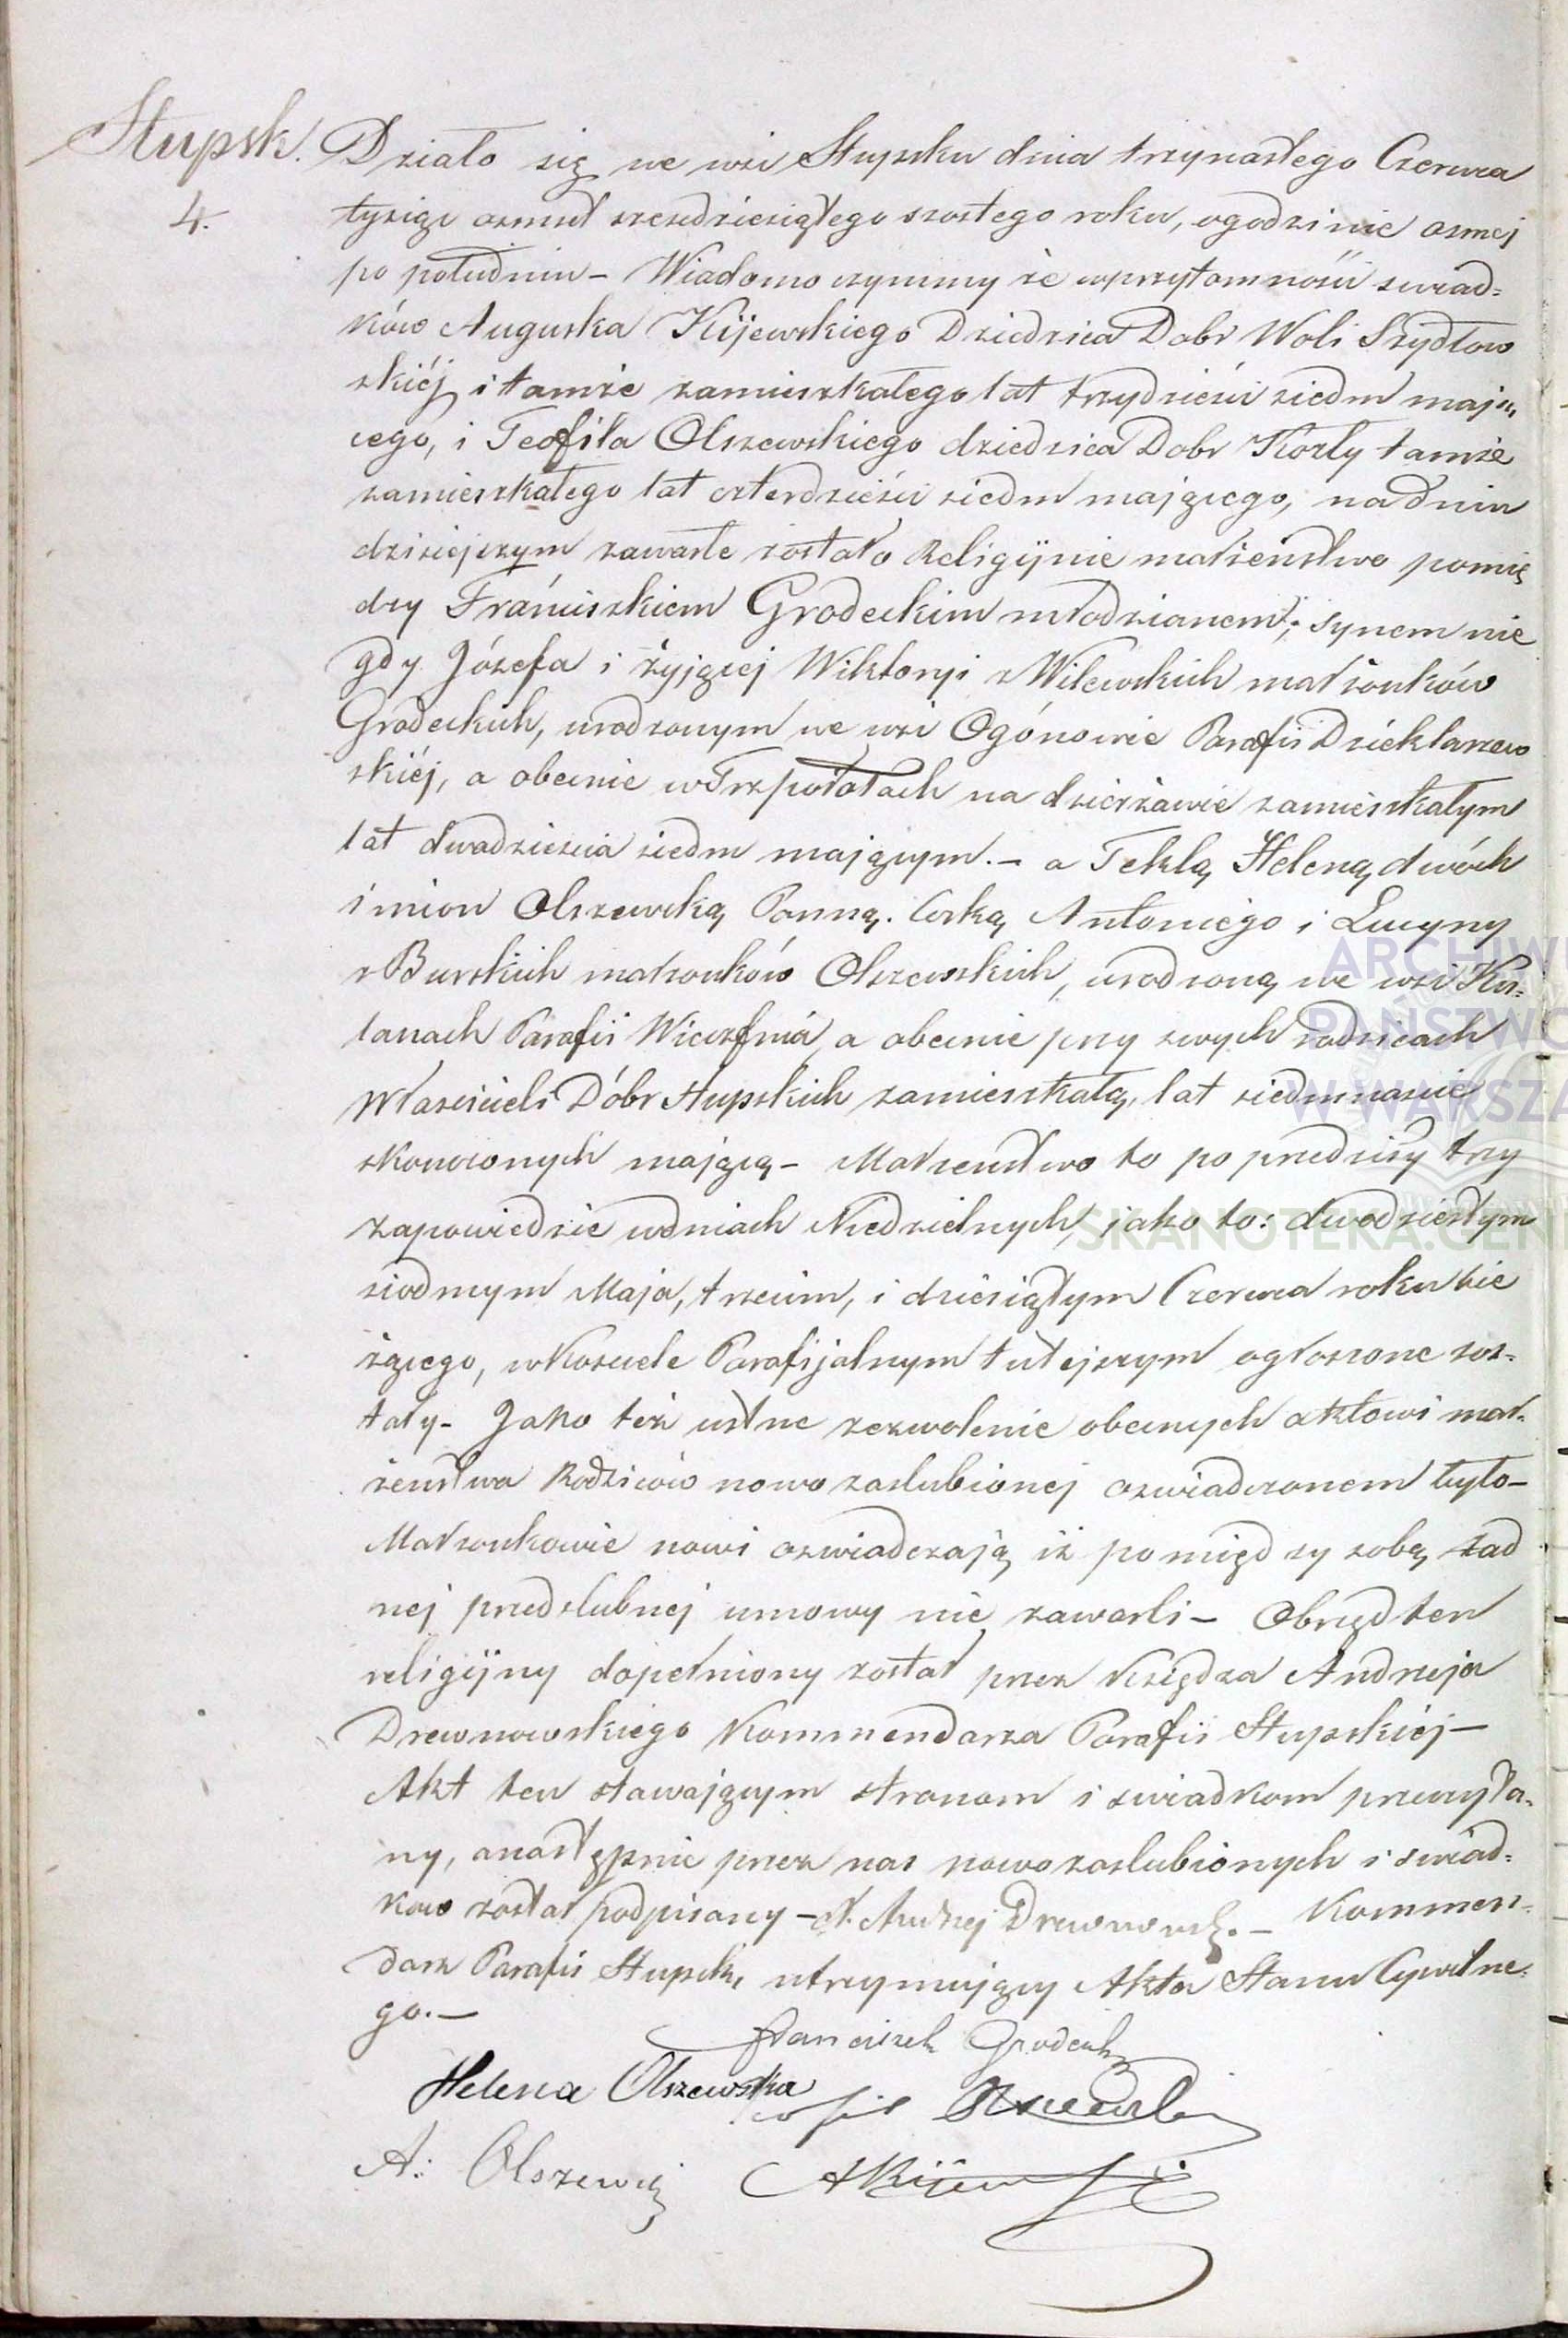 Słupsk.
4.
Działo się we wsi Słupsku dnia trzynastego Czerwca
tysiąc osmset szesdziesiątego szostego roku, ogodzinie osmej
po południu – Wiadomo czynimy że wprzytomności swiad=
ków Augusta Kijewskiego Dziedzica Dobr Woli Szydłow
skiéj i tamże zamieszkałego lat trzydzieści siedm mają
cego, i Teofila Olszewskiego dziedzica Dobr Kozly tamże
zamieszkałego lat czterdzieści siedm mającego, na dniu
dzisiejszym zawarte zostało Religijnie małżeństwo pomię
dzy Franciszkiem Grodeckim młodzianem, synem nie
gdy Józefa i żyjącej Wiktoryi z Wilewskich małżonków
Grodeckich, urodzonym we wsi Ogónowie Parafii Dziektarzew
skiéj, a obecnie w Trzpiołach na dzierżawie zamieszkałym
lat dwadziescia siedm mającym. – a Teklą Heleną dwóch
imion Olszewską Panną. Corką Antoniego i Lucyny
z Burskich małżonków Olszewskich, urodzoną we wsi Ku=
lanach Parafii Wieczfnia, a obecnie przy swych rodzicach
Własciciels Dóbr Słupskich zamieszkałą, lat siedmnascie
skonczonych mającą – Małzenstwo to poprzedziły trzy
zapowiedzie wdniach Niedzielnych, jako to: dwodziestym
siodmym Maja, trzecim, i dziesiątym Czerwca roku bie
żącego, wKosciele Parafijalnym tutejszym ogłoszone zos=
tały – Jako też ustne zezwolenie obecnych aktowi mał=
żenstwa Rodziców nowo zaslubionej oswiadczonem było –
Małzonkowie nowi oswiadczają iż pomiędzy sobą żad
nej przedslubnej umowy nie zawarli – Obrzęd ten
religijny dopełniony został przez Księdza Andrzeja
Drewnowskiego Kommendarza Parafii Słupskiéj –
Akt ten stawającym stronom i swiadkom przeczyta=
ny, anastępnie przez nas nowozaslubionych i swiad=
kow został podpisany – X. Andrzej Drewnowsk. – Kommen=
darz Parafii Słupsk, utrzymujący Akta Stanu Cywilne=
go. –
Franciszek Grodecki
Helena Olszewska
Teofil Olszewski
A: Olszewski
AKijewski
ARCHIWU
PAŃSTWO
W WARSZA
SKANOTEKA.GENE